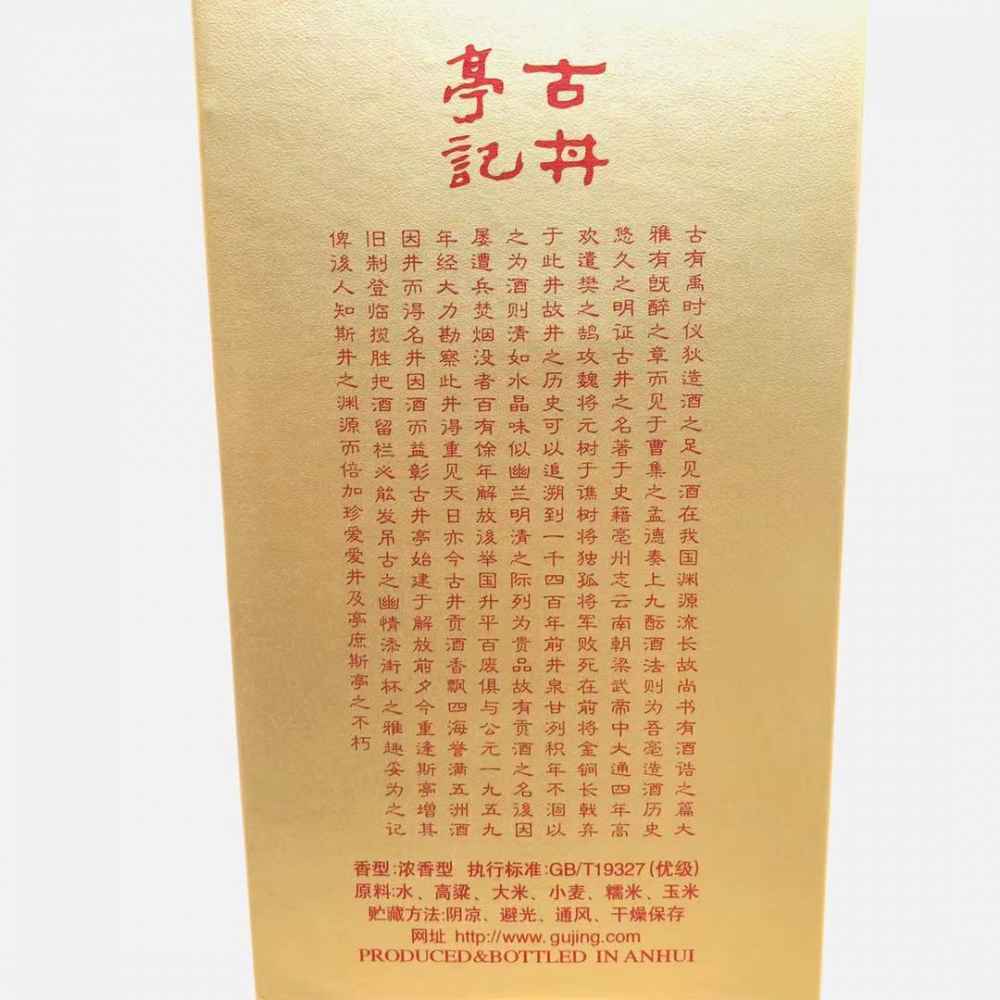 古井
亭記
古有禹时仪狄造酒之足见酒在我国渊源流长故尚书有酒诰之篇大
雅有既醉之章而见于曹集之孟德奏上九酝酒法则为吾亳造酒历史
悠久之明证古井之名著于史籍亳州志云南朝梁武帝中大通四年高
欢遣樊之鹄攻魏将元树于谯树将独孤将军败死在前将金锏长戟弃
于此井故井之历史可以追溯到一千四百年前井泉甘冽积年不涸以
之为酒则清如水晶味似幽兰明清之际列为贵品故有贡酒之名後因
屡遭兵焚烟没者百有馀年解放後举国升平百废俱与公元一九五九
年经大力勘察此井得重见天日亦今古井贡酒香飘四海誉满五洲酒
因井而得名井因酒而益彰古井亭始建于解放前夕今重逢斯亭增其
旧制登临揽胜把酒留栏必能发吊古之幽情添街杯之雅趣妥为之记
俾後人知斯井之渊源而倍加珍爱爱井及亭庶斯亭之不朽
香型:浓香型 执行标准:GB/T19327(优级)
原料:水、高粱、大米、小麦、糯米、玉米
贮藏方法:阴凉、避光、通风、干燥保存
网址 http://www.gujing.com
PRODUCED&BOTTLED IN ANHUI